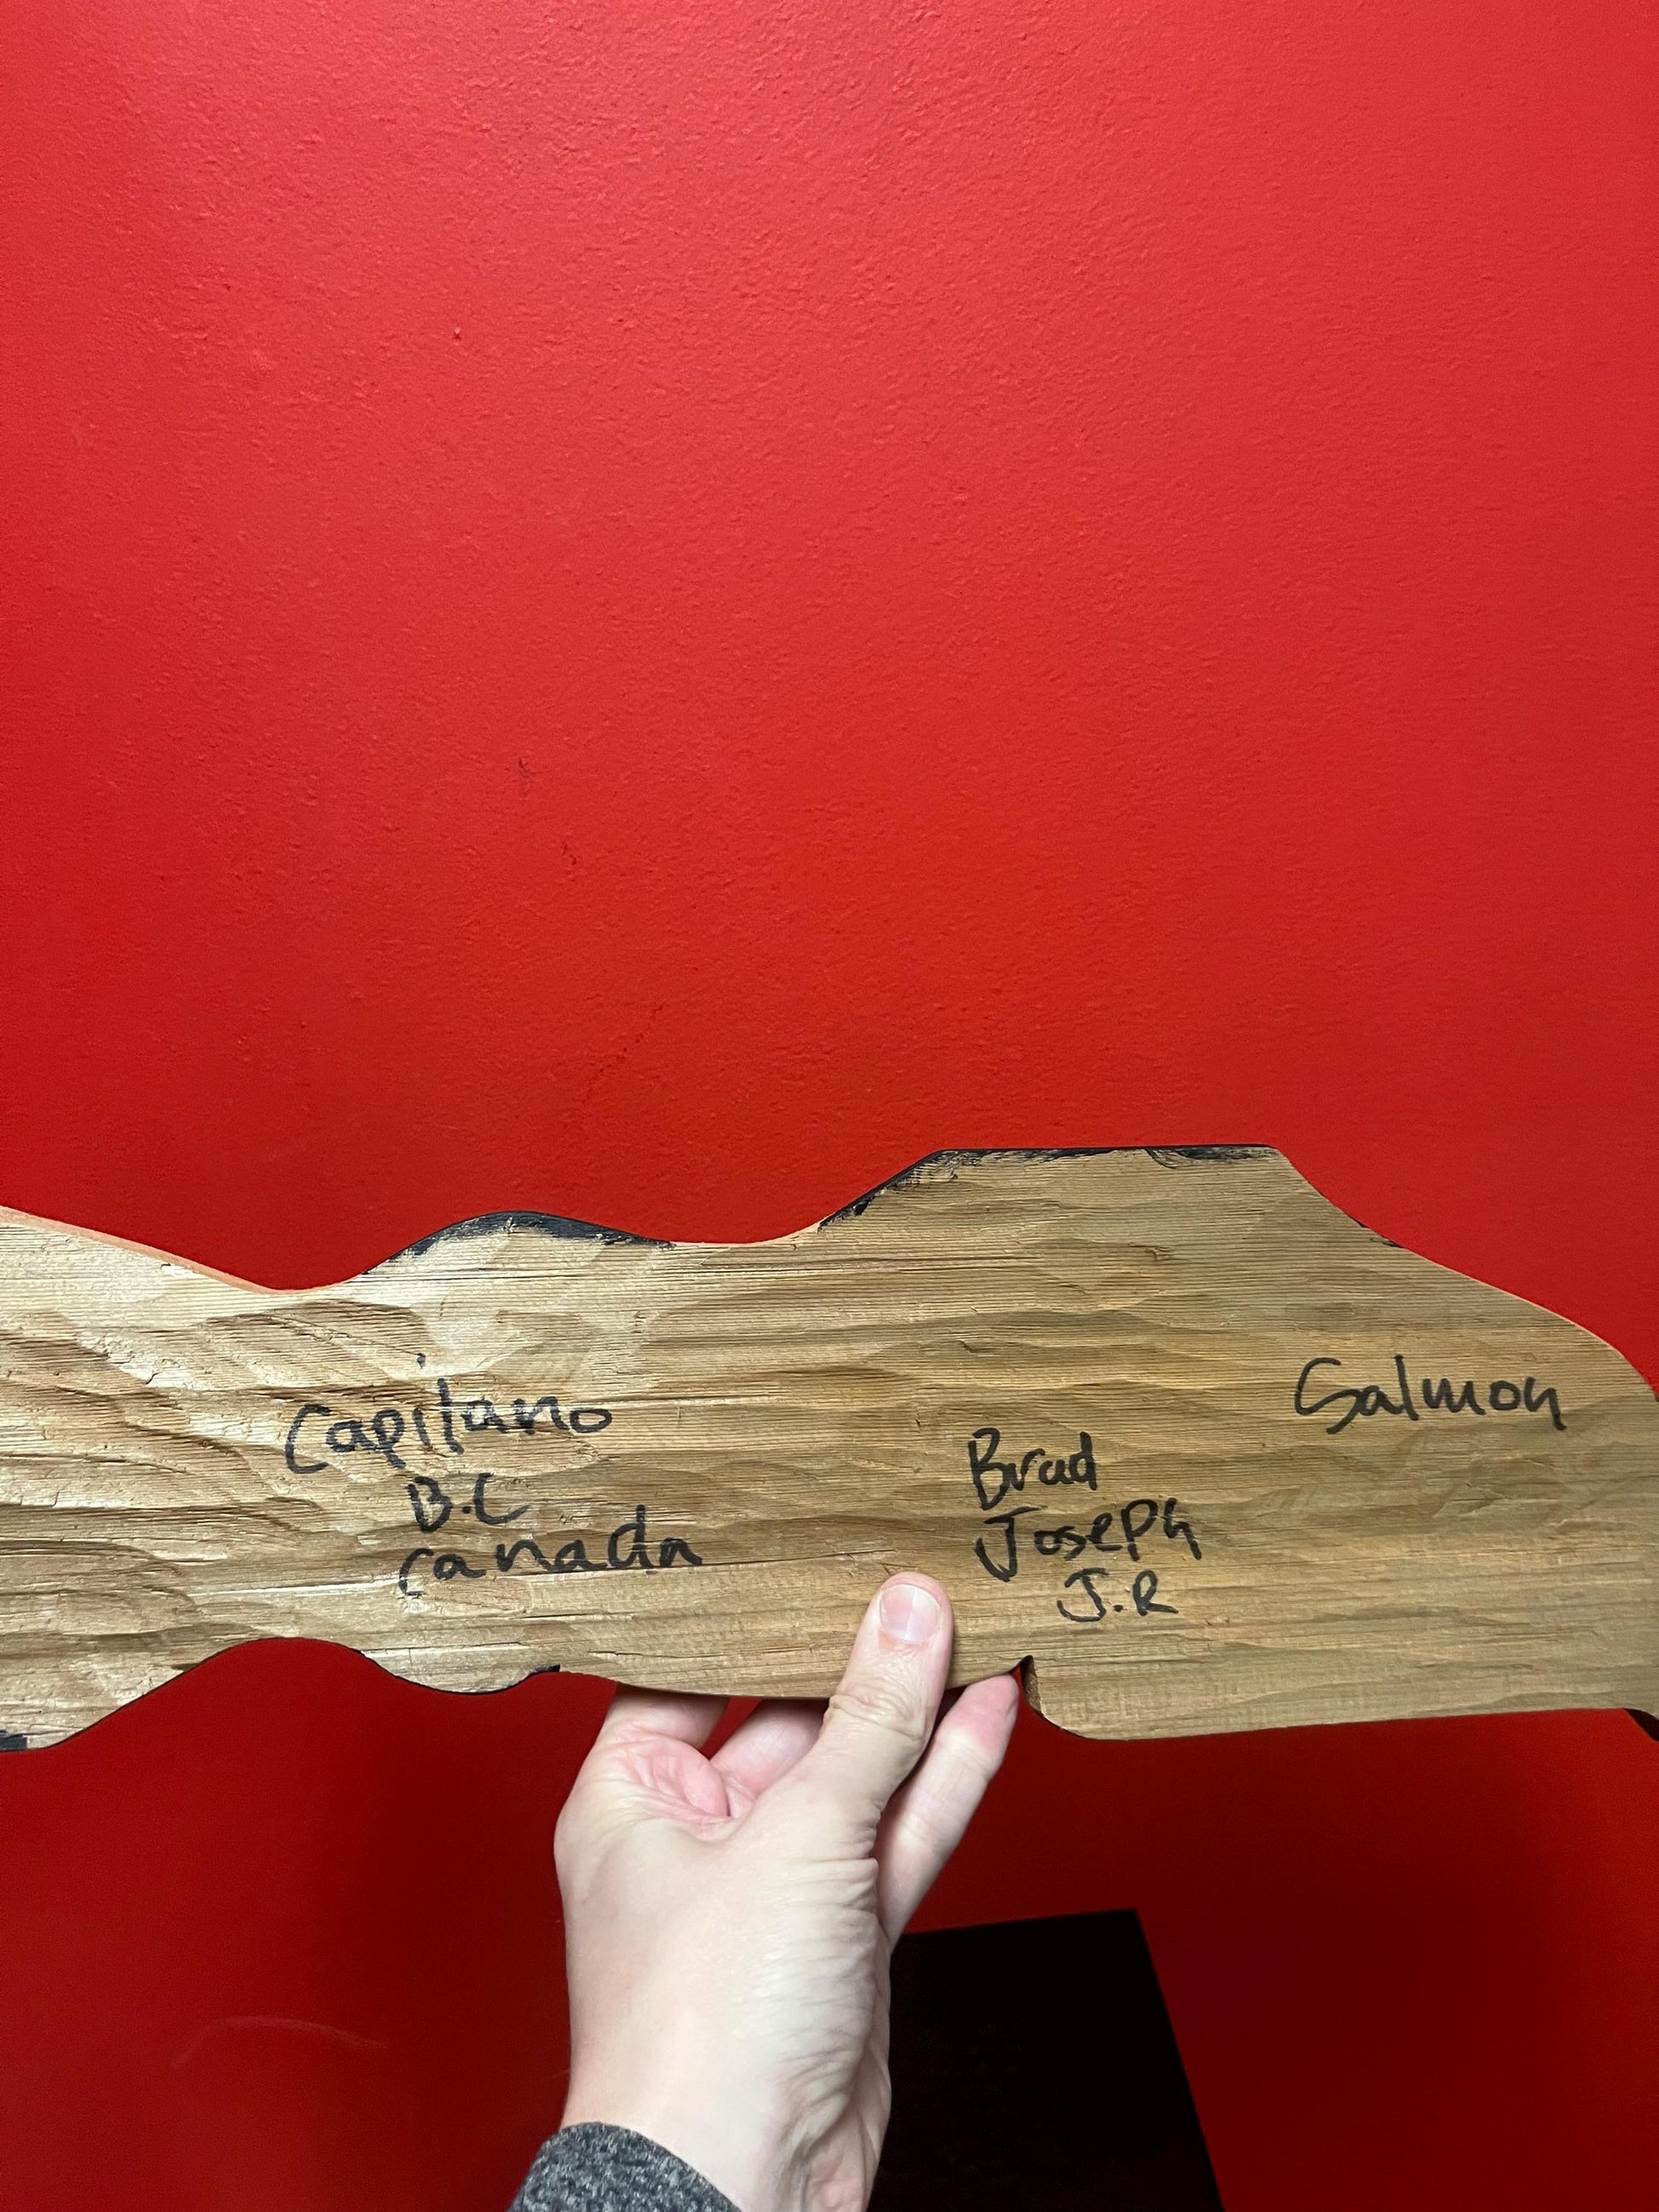 Capilano
B.C
Canada
Brad
Joseph
J.R
Salmon